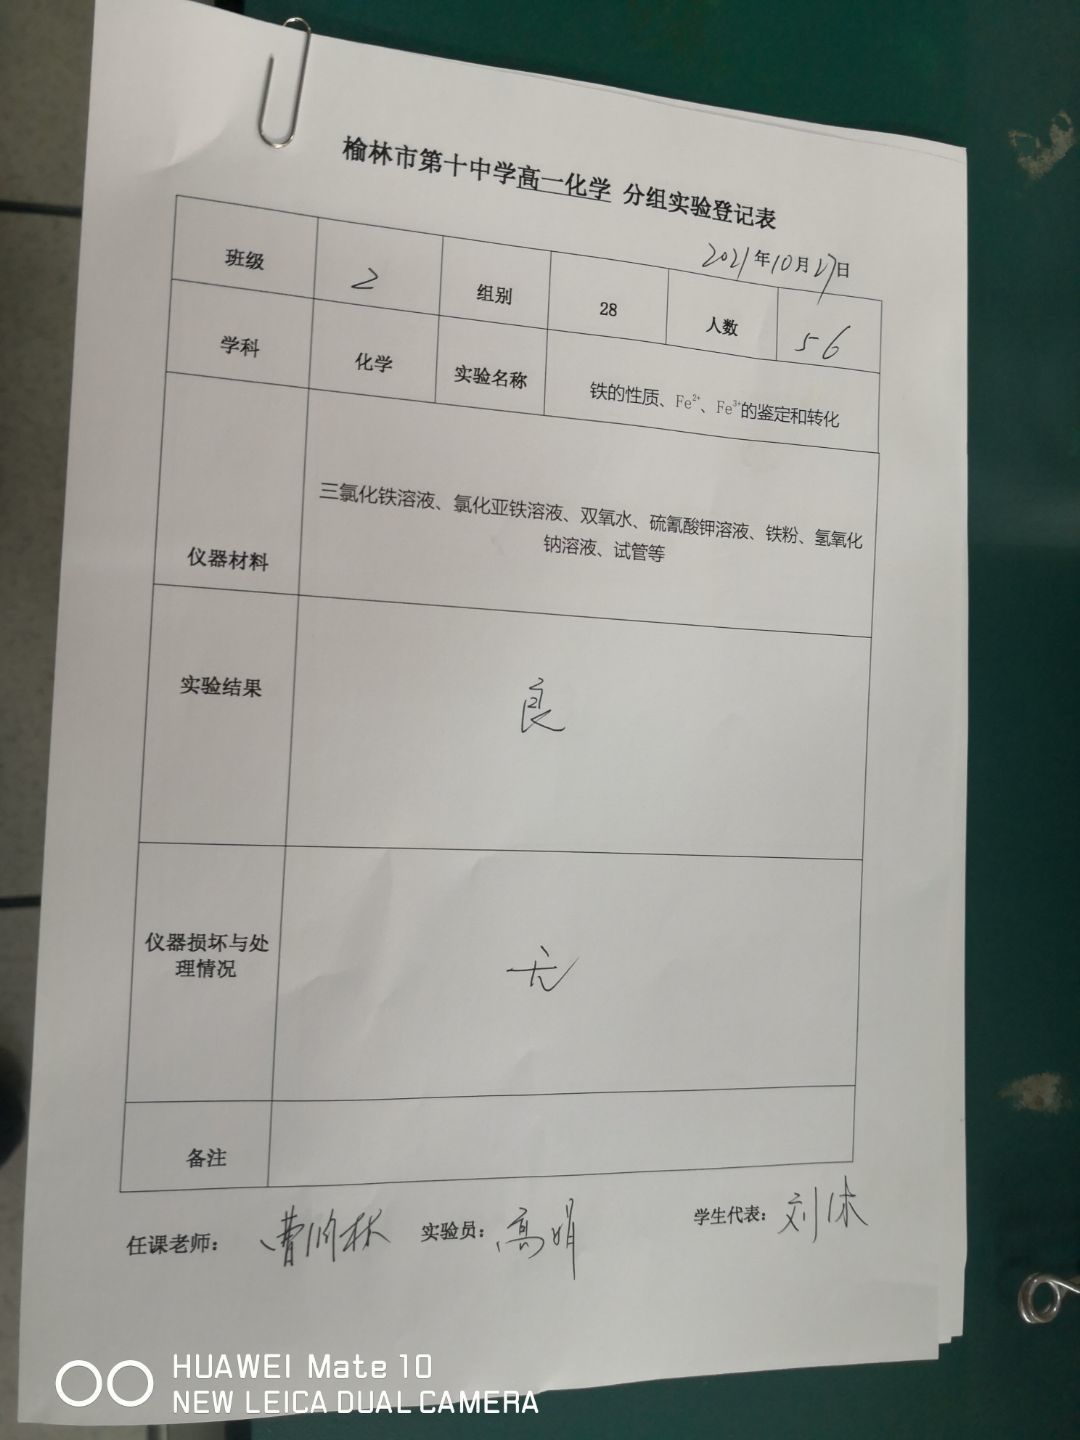 榆林市第十中学高一化学 分组实验登记表
2021年10月27日
班级 2 组别 28 人数 56
学科 化学 实验名称 铁的性质、Fe²⁺、Fe³⁺的鉴定和转化
三氯化铁溶液、氯化亚铁溶液、双氧水、硫氰酸钾溶液、铁粉、氢氧化
钠溶液、试管等
仪器材料
实验结果 良
仪器损坏与处
理情况
无
备注
任课老师： 实验员：高娟 学生代表：刘
HUAWEI Mate 10
NEW LEICA DUAL CAMERA